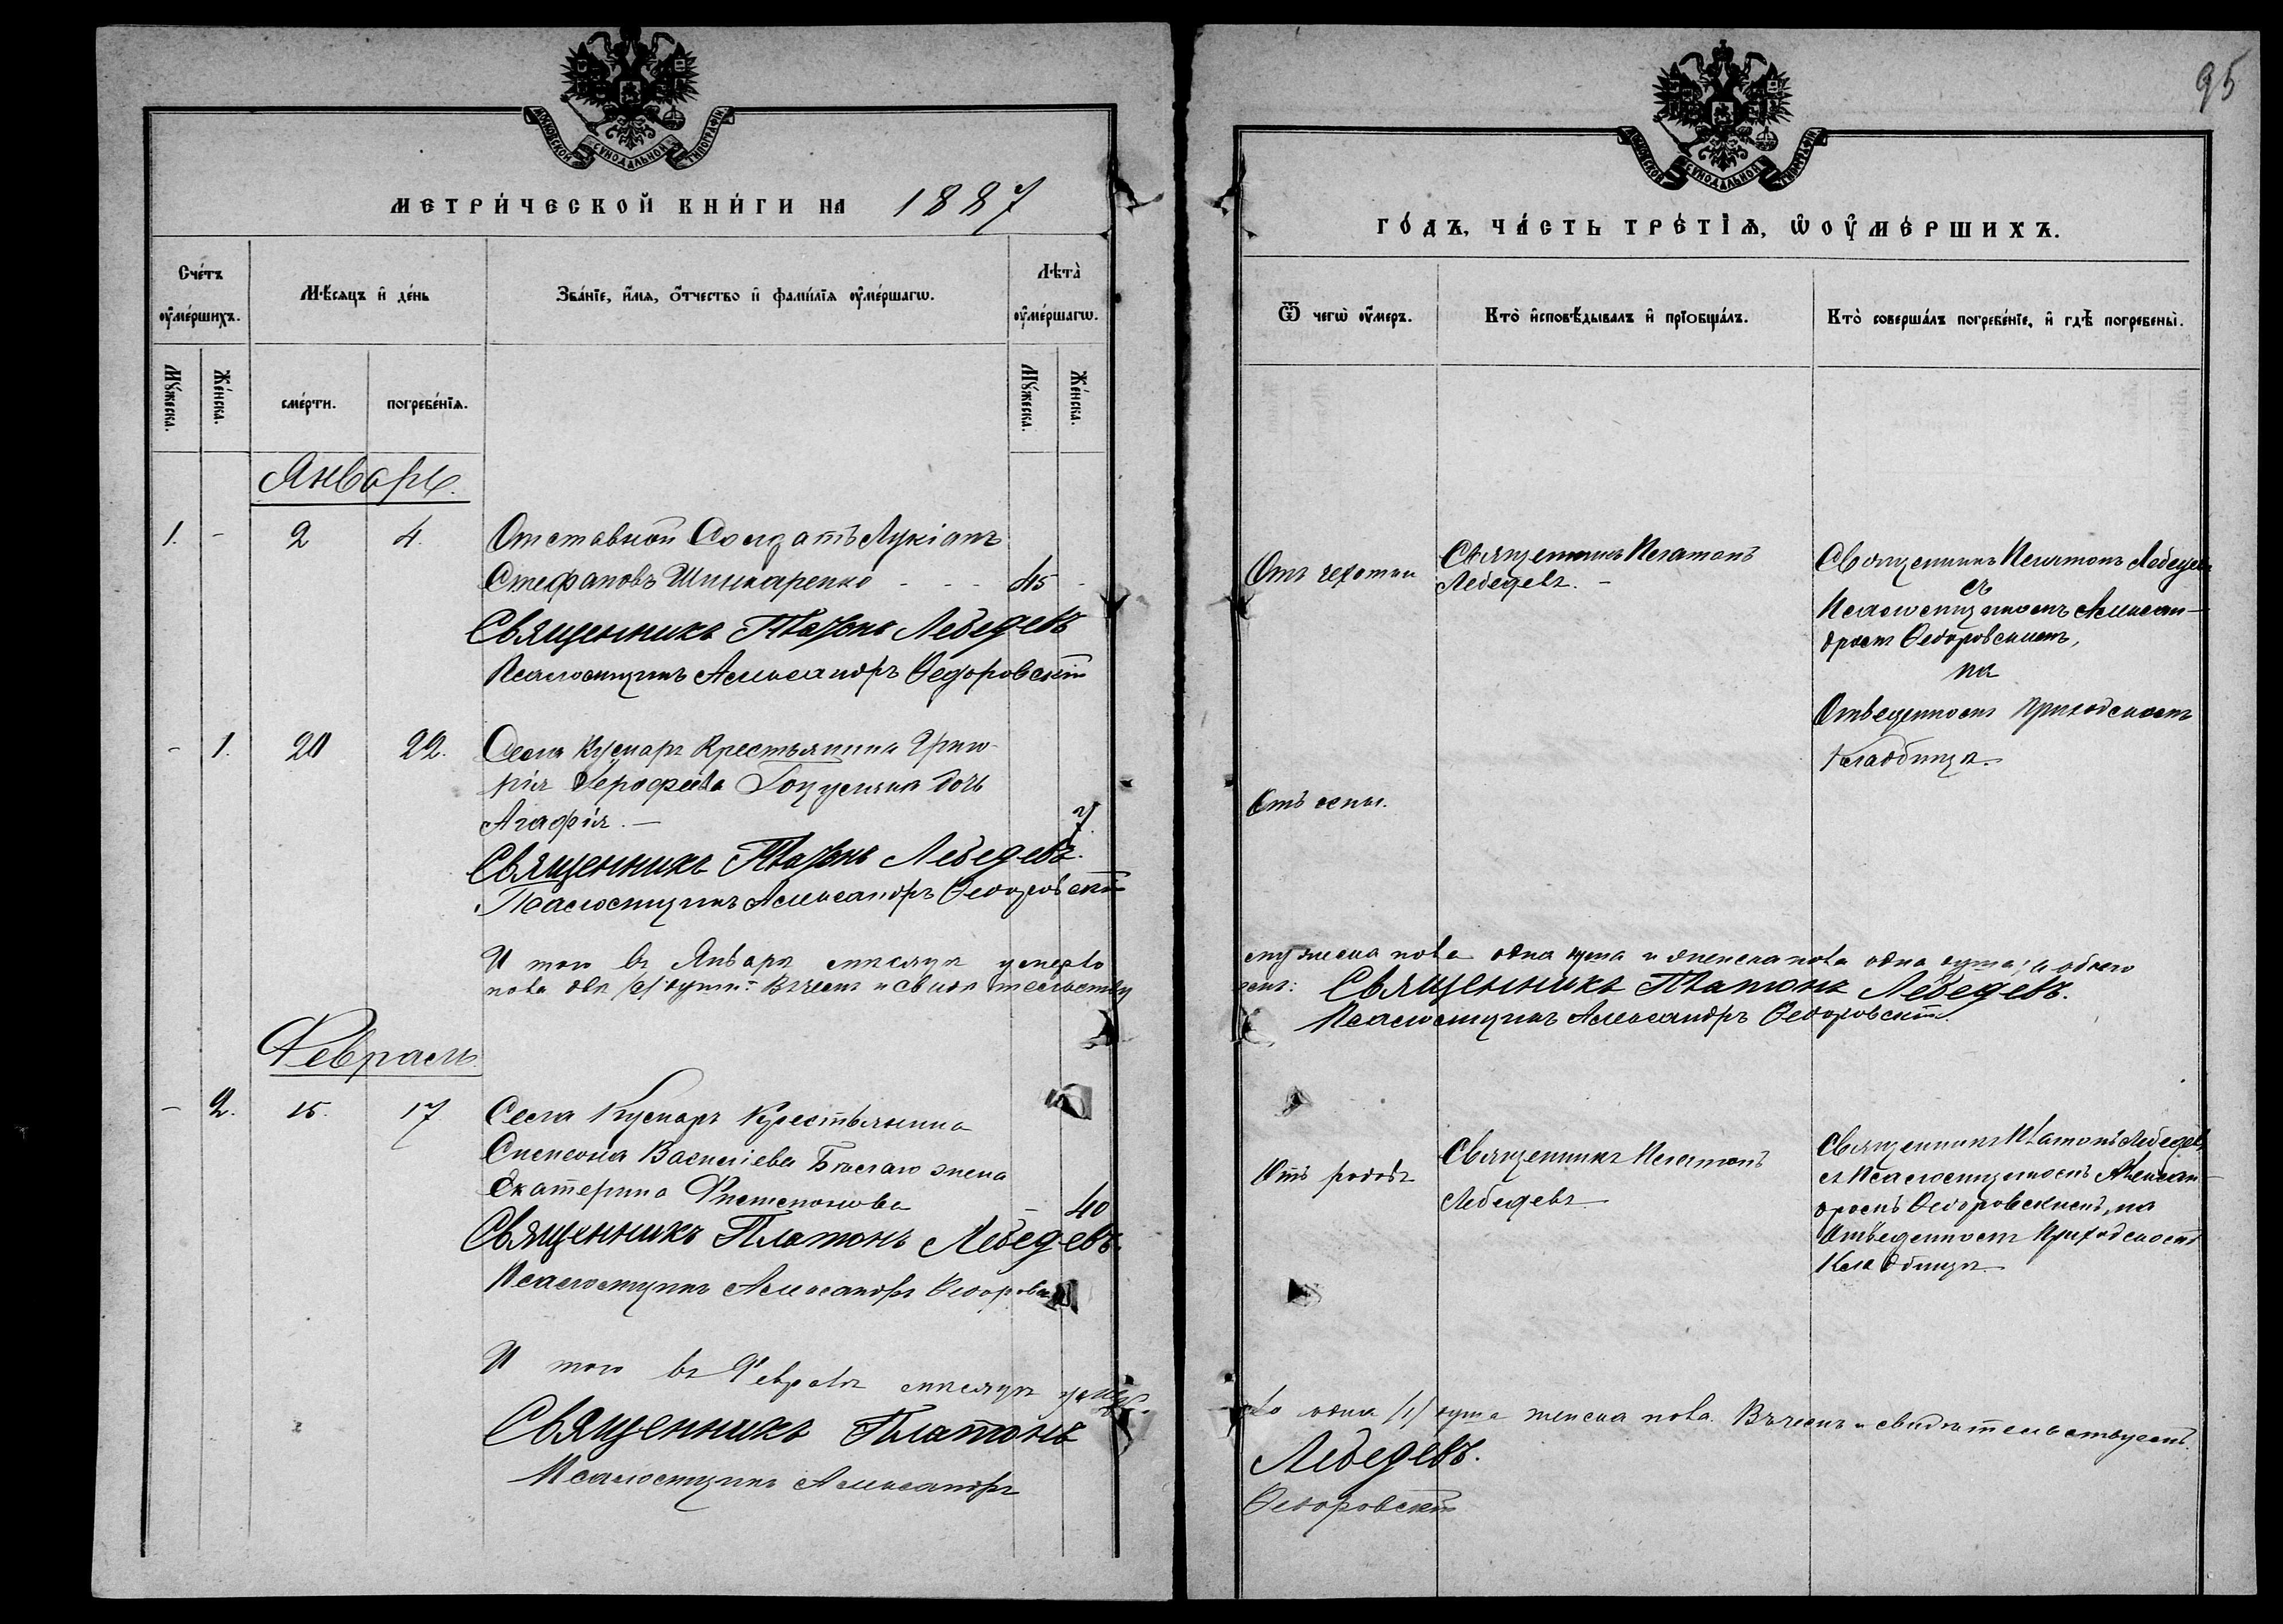 95
МОСКОВСКОЙ СѴНОДАЛЬНОЙ ТИПОГРАФІИ
МЕТРИ́ЧЕСКОЙ КНИ́ГИ НА 1887
Сче́тъ ᲂу҆ме́ршихъ.
Мѣ́сяцъ и҆ де́нь
Зва́нїе, и҆́мѧ, ѻ҆́тчество и҆ фами́лїѧ ᲂу҆ме́ршагѡ.
Лѣта̀ ᲂу҆ме́ршагѡ.
Мꙋ́жеска.
Же́нска.
сме́рти.
погребе́нїѧ.
Мꙋ́жеска.
Же́нска.
Январь.
1. - 2 4. Отставной Солдатъ Лукіанъ
Стефановъ Шинкаренко - - - 45 -
Священникъ Платонъ Лебедевъ
Псаломщикъ Александръ Ѳедоровскій
- 1. 20 22. Села Кусмаръ Крестьянина Григо-
рія Іерофеева дочь
Агафія. — 7.
Священникъ Платонъ Лебедевъ.
Псаломщикъ Александръ Ѳедоровскій
И того въ Январѣ мѣсяцѣ умерло
пола двѣ /2/ души.
Февраль.
- 2. 15. 17 Села Кусмаръ Крестьянина
Василіева Бѣлаго жена
Екатерина - 40
Священникъ Платонъ Лебедевъ.
Псаломщикъ Александръ
И того въ Февралѣ мѣсяцѣ умер-
Священникъ Платонъ
Псаломщикъ Александръ
МОСКОВСКОЙ СѴНОДАЛЬНОЙ ТИПОГРАФІИ
ГО́ДЪ, ЧА́СТЬ ТРЕ́ТІѦ, Ѡ ОУ҆МЕ́РШИХЪ.
Ѿ чегѡ̀ ᲂу҆́меръ.
Кто̀ и҆сповѣ́дывалъ и҆ прїѻбща́лъ.
Кто̀ соверша́лъ погребе́нїе, и҆ гдѣ̀ погребены̀.
Отъ чахотки
Священникъ Платонъ
Лебедевъ. -
Священникъ Платонъ Лебедевъ
съ
Псаломщикомъ Алексан-
дромъ Ѳедоровскимъ,
на
Отведенномъ приходскомъ
Кладбищѣ.
Отъ оспы.
мужеска пола одна душа и женска пола одна душа; а обоего
Священникъ Платонъ Лебедевъ.
Псаломщикъ Александръ Ѳедоровскій.
Отъ родовъ
Священникъ Платонъ
Лебедевъ
Священникъ Платонъ Лебедевъ
съ Псаломщикомъ Алексан-
дромъ Ѳедоровскимъ, на
Отведенномъ Приходскомъ
Кладбищѣ
ло одна /1/ душа женска пола. Въ чемъ и свидѣтельствуемъ.
Лебедевъ.
Ѳедоровскій